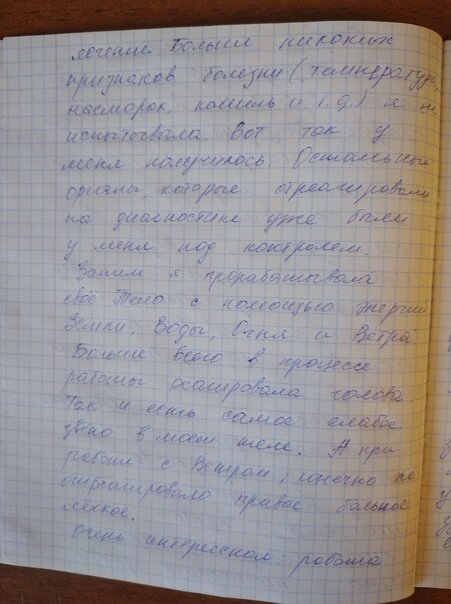 лечение. Больше никаких
признаков болезни (температура,
насморок, кашель и т.д.) я не
испытывала. Вот так у
меня получилось. Остальные
органы, которые отреагировали
на диагностике уже были
у меня под контролем.
Затем я прорабатывала
своё Тело с помощью энергии
Земли, Воды, Огня и Ветра
Больше всего в процессе
работы реагировала голова.
Так и есть самое слабое
звено в моем теле. А при
работе с Ветром, конечно же
отреагировало правое больное
лёгкое.
Очень интересная работа